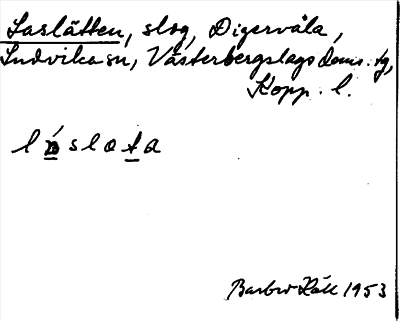 Laslätten, skog, Digervåla,
Ludvika sn, Västerbergslags doms. tg,
Kopp. l.
Barbro Häll 1953